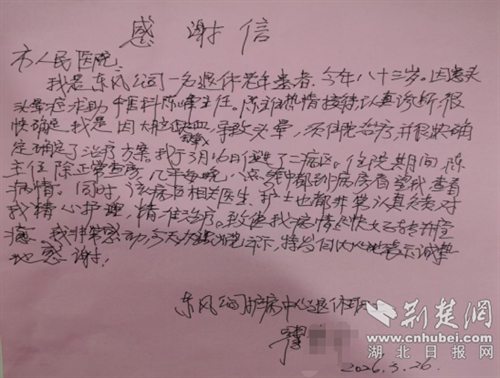 感谢信
市人民医院:
我是东风公司一名退休老年患者,今年八十三岁。因患头
头晕症求助中医科陈峰主任。陈主任热情接待,认真诊断,很
快确定我是因大脑缺血导致头晕,须住院治疗并很快确
定确定了治疗方案。我于3月16日住进了二病区。住院期间,陈
主任除正常查房,几乎每晚八点多钟都到病房看望我,查看
病情。同时,该病区相关医生、护士也都非常认真负责对
我精心护理,精准治疗。致使我病情很快好转并痊
愈。我非常感动,今天
地感谢!
东风公司 中心退休职工
2026.3.26
荆楚网
www.cnhubei.com
湖北日报网